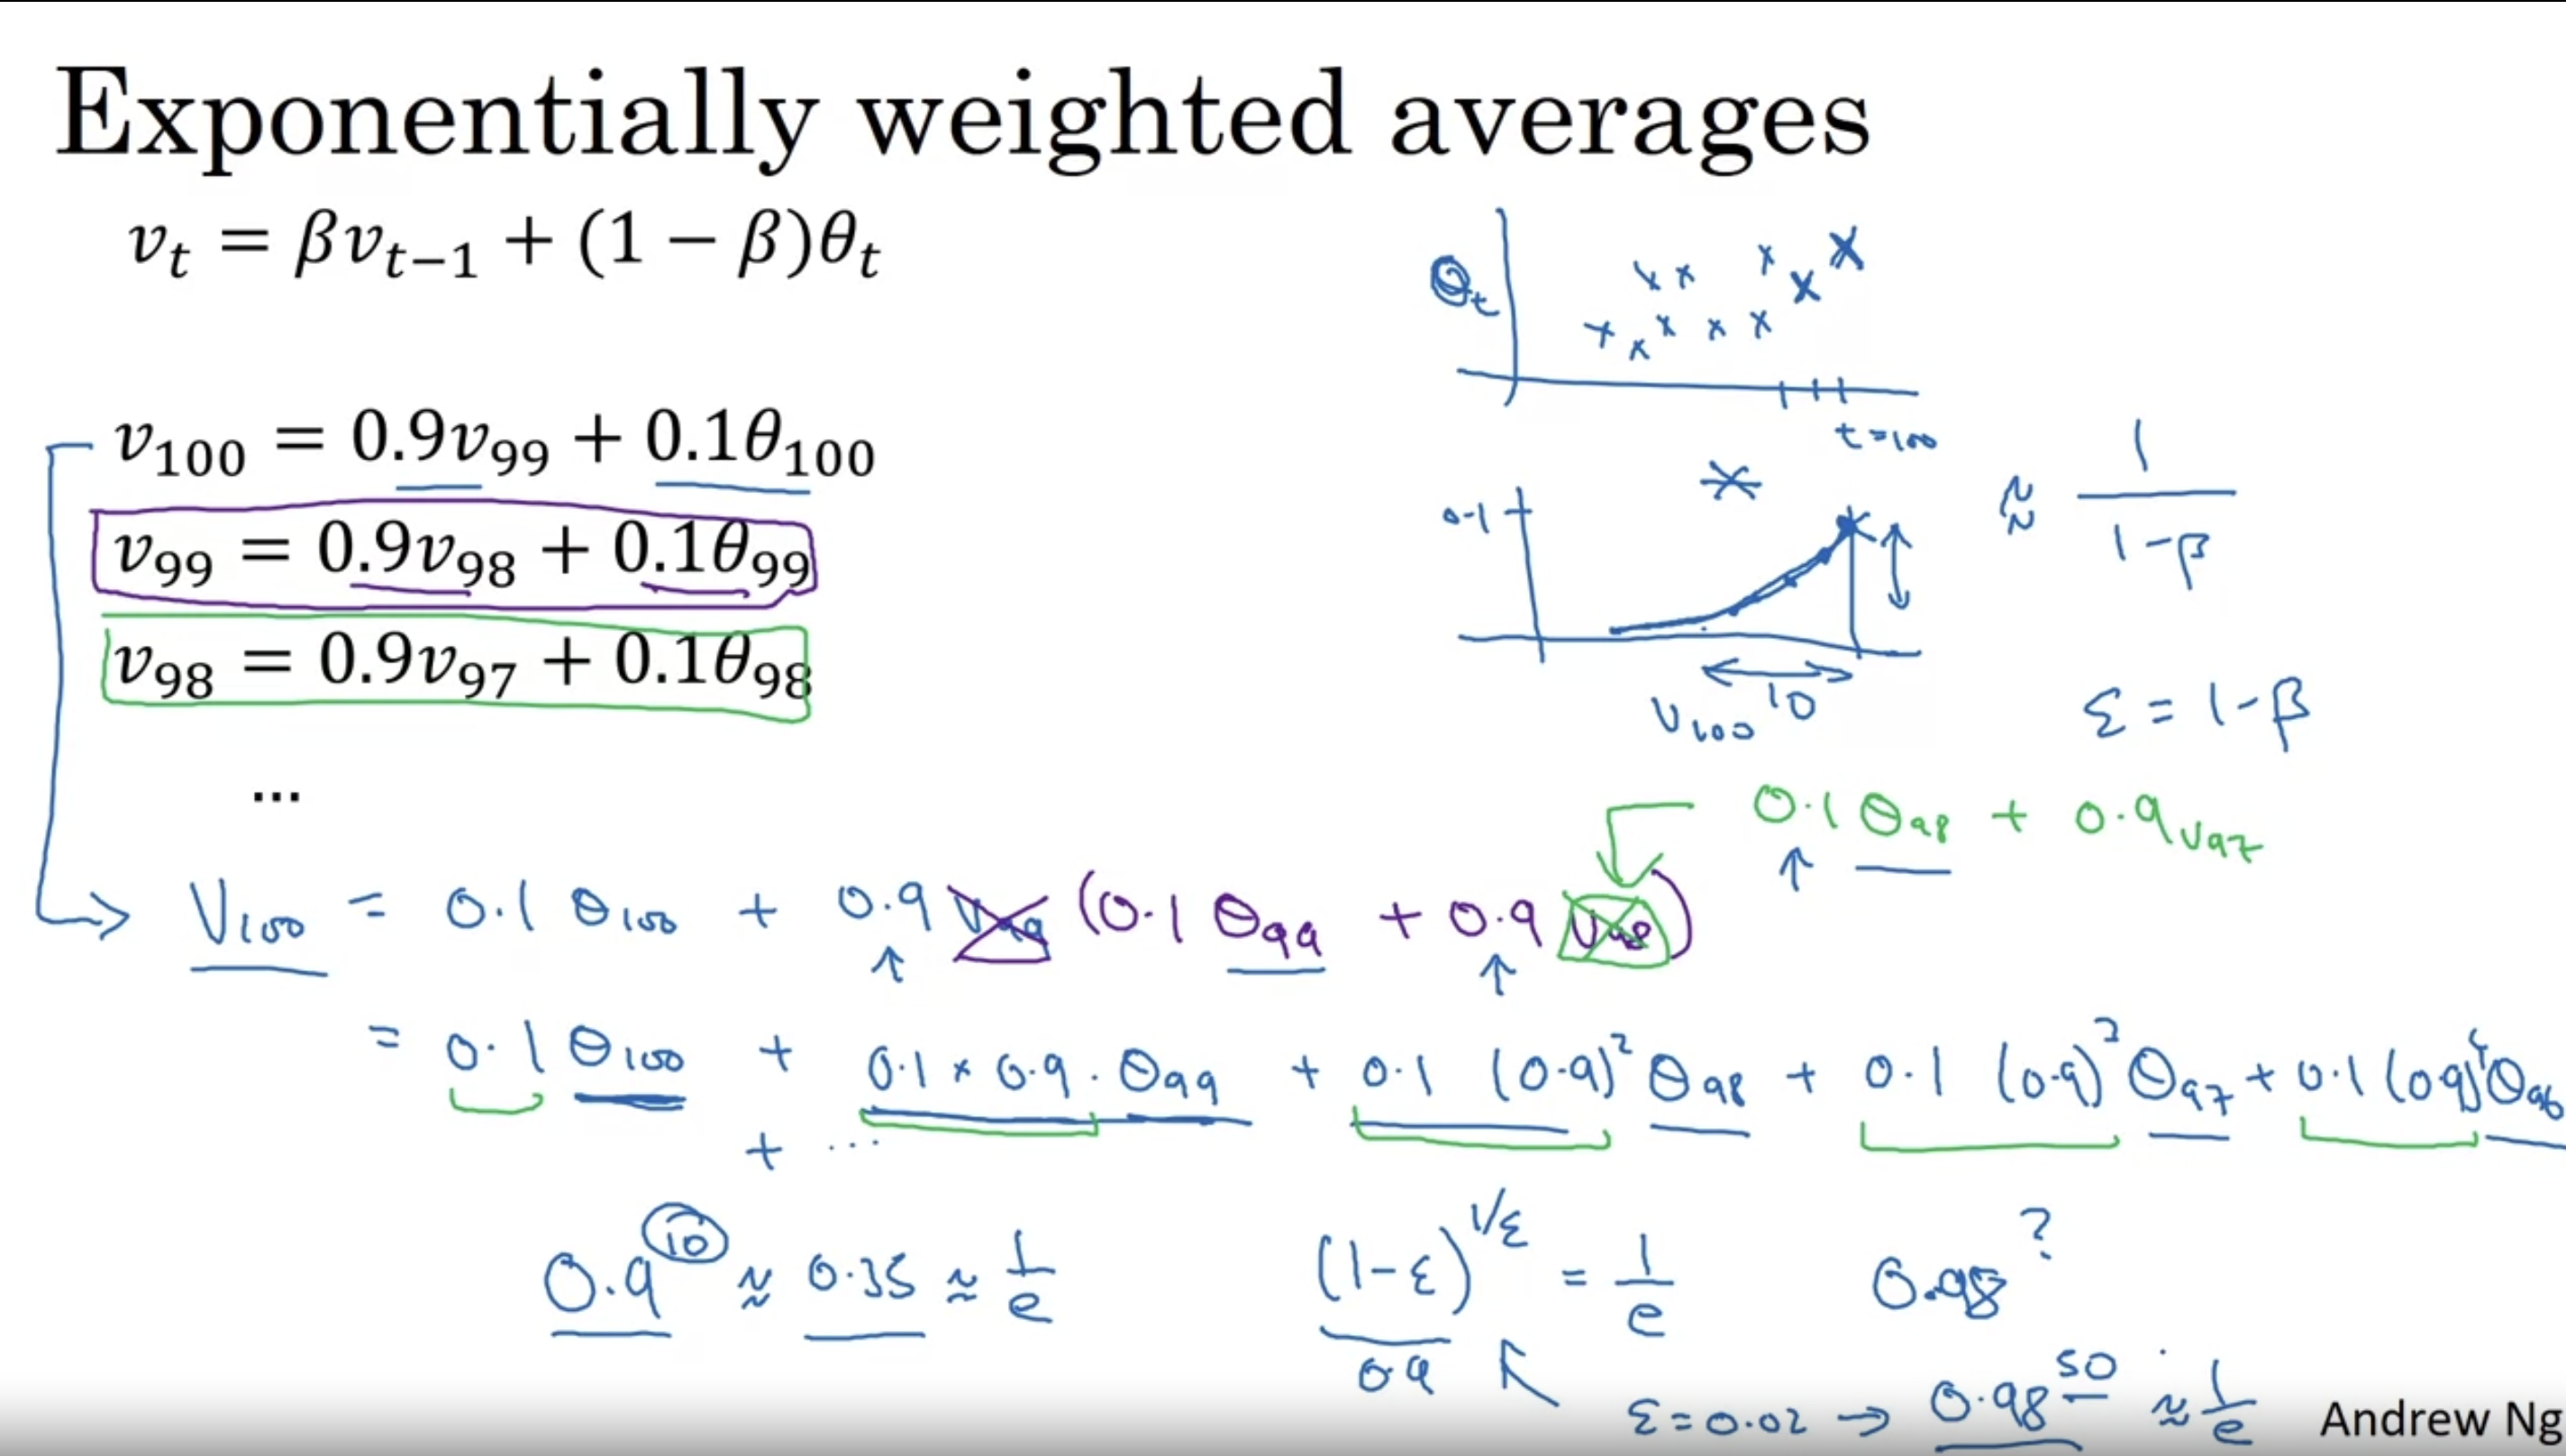 Exponentially weighted averages
v_t = βv_{t−1} + (1 − β)θ_t
θ_t
t=100
v_100 = 0.9v_99 + 0.1θ_100
v_99 = 0.9v_98 + 0.1θ_99
v_98 = 0.9v_97 + 0.1θ_98
...
0.1
10
V_100
≈ 1/(1-β)
ε = 1-β
0.1 θ_98 + 0.9 v_97
V_100 = 0.1 θ_100 + 0.9 V_99 (0.1 θ_99 + 0.9 V_98)
= 0.1 θ_100 + 0.1 × 0.9 · θ_99 + 0.1 (0.9)² θ_98 + 0.1 (0.9)³ θ_97 + 0.1 (0.9)⁴ θ_96
+ ...
0.9^10 ≈ 0.35 ≈ 1/e
(1-ε)^{1/ε} = 1/e
0.9
0.98^?
ε = 0.02 → 0.98^50 ≈ 1/e
Andrew Ng